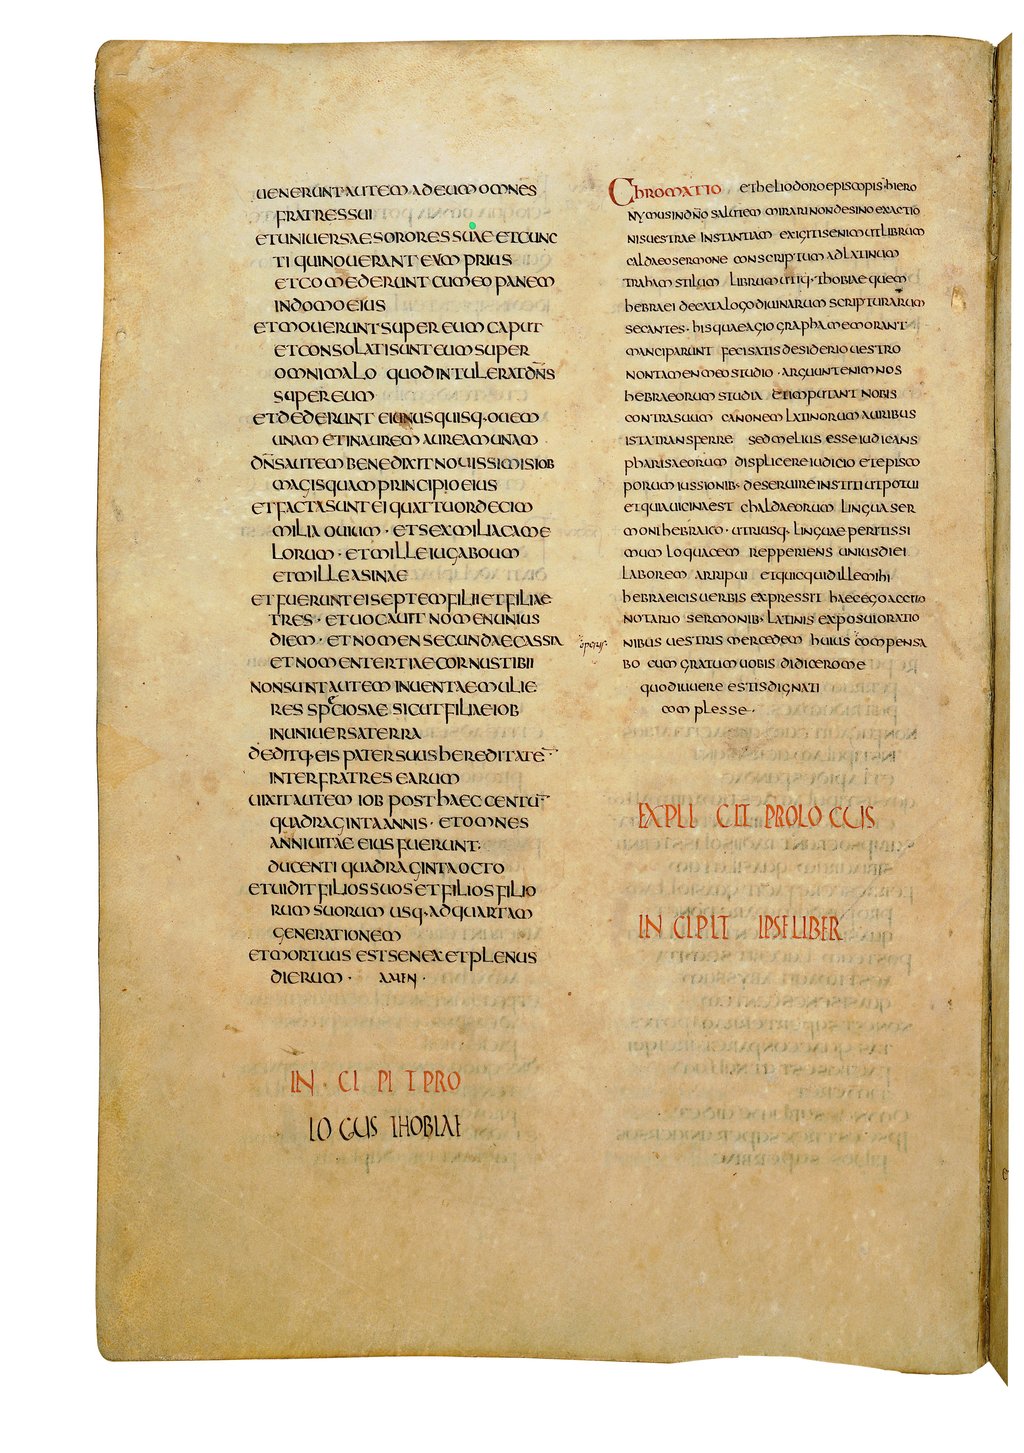 UENERUNTAUTEMADEUMOMNES
FRATRESSUI
ETUNIUERSAESORORESSUAE ETCUNC
TI QUINOUERANT EUM PRIUS
ETCOMEDERUNT CUMEO PANEM
INDOMOEIUS
ETMOUERUNTSUPER EUM CAPUT
ETCONSOLATISUNTEUMSUPER
OMNIMALO QUODINTULERATDN̄S
SUPEREUM
ETDEDERUNT EIUNUSQUISQ·OUEM
UNAM ETINAUREM AUREAMUNAM
DN̄SAUTEM BENEDIXITNOUISSIMISIOB
MAGISQUAM PRINCIPIOEIUS
ETFACTASUNTEI QUATTUORDECIM
MILIA OUIUM · ETSEXMILIACAME
LORUM · ETMILLEIUGABOUM
ETMILLEASINAE
ETFUERUNTEISEPTEMFILIIETFILIAE
TRES · ETUOCAUIT NOMENUNIUS
DIEM · ETNOMENSECUNDAECASSIA
ETNOMENTERTIAECORNUSTIBII
NONSUNTAUTEM INUENTAEMULIE
RES SPECIOSAE SICUTFILIAEIOB
INUNIUERSATERRA
DEDITQ·EIS PATERSUUSHEREDITATĒ
INTERFRATRES EARUM
UIXITAUTEM IOB POSTHAEC CENTŪ
QUADRAGINTAANNIS · ETOMNES
ANNIUITAE EIUS FUERUNT·
DUCENTI QUADRAGINTAOCTO
ETUIDITFILIOSSUOSETFILIOSFILIO
RUM SUORUM USQ·ADQUARTAM
GENERATIONEM
ETMORTUUS ESTSENEXETPLENUS
DIERUM · AMEN ·
IN · CI PI T PRO
LO GUS THOBIAE
CHROMATIO ETHELIODOROEPISCOPIS·HIERO
NYMUSINDN̄O SALUTEM MIRARINONDESINOEXACTIO
NISUESTRAE INSTANTIAM EXIGITISENIMUTLIBRUM
CALDAEOSERMONE CONSCRIPTUMADLATINUM
TRAHAM STILUM LIBRUMUTIQ·THOBIAEQUEM
HEBRAEI DECATALOGODIUINARUM SCRIPTURARUM
SECANTES · HISQUAEAGIOGRAPHAMEMORANT
MANCIPARUNT FECISATISDESIDERIOUESTRO
NONTAMENMEOSTUDIO · ARGUUNTENIMNOS
HEBRAEORUM STUDIA ETIMPUTANT NOBIS
CONTRASUUM CANONEM LATINORUMAURIBUS
ISTATRANSFERRE SEDMELIUS ESSEIUDICANS
PHARISAEORUM DISPLICEREIUDICIO ETEPISCO
PORUMIUSSIONIB· DESERUIREINSTITIUTPOTUI
ETQUIAUICINAEST CHALDAEORUM LINGUASER
MONIHEBRAICO · UTRIUSQ· LINGUAEPERITISSI
MUM LOQUACEM REPPERIENS UNIUSDIEI
LABOREM ARRIPUI ETQUICQUIDILLEMIHI
HEBRAEICISUERBIS EXPRESSIT HAECEGOACCITO
NOTARIO SERMONIB· LATINIS EXPOSUIORATIO
NIBUS UESTRIS MERCEDEM HUIUS COMPENSA
BO CUM GRATUMUOBIS DIDICEROME
QUODIUUERE ESTISDIGNATI
COMPLESSE·
EXPLI CIT PROLO GUS
IN CIPIT IPSELIBER